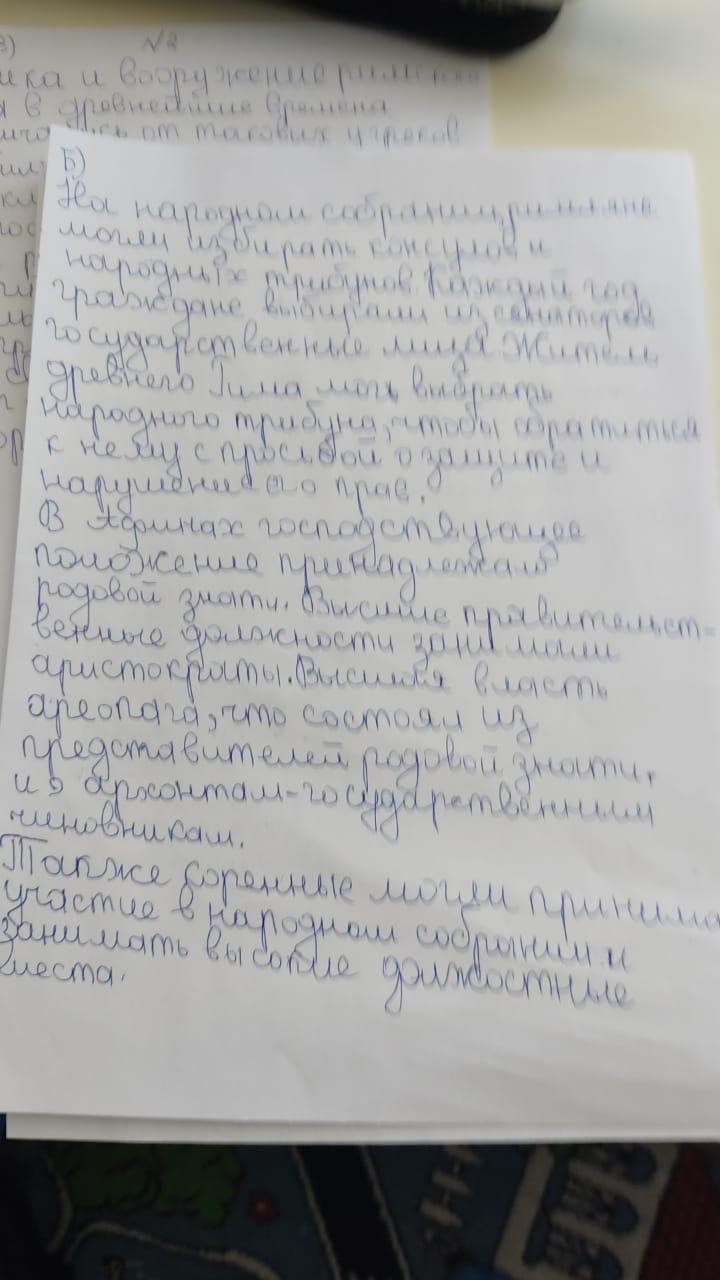 №2
ика и вооружение римск
в древнейшие времена
от таковых у греков
Б)
На народном собрании, римляне
могли избирать консулов и
народных трибунов. Каждый год
граждане выбирали из сенаторов
государственные лица. Житель
древнего Рима мог выбрать
народного трибуна, чтобы обратиться
к нему с просьбой о защите и
нарушении его прав.
В Афинах господствующее
положение принадлежало
родовой знати. Высшие правительст-
венные должности занимали
аристократы. Высшая власть
ареопага, что состоял из
представителей родовой знати,
и 9 архонтам-государственным
чиновникам.
Также коренные могли принима
участие в народном собрании и
занимать высокие должостные
места.